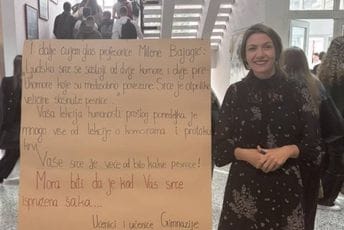 I dalje čujem glas profesorice Milone Bajagić:
"Ljudsko srce se sastoji od dvije komore i dvije pret-
komore koje su međusobno povezane. Srce je otprilike
veličine stisnute pesnice..."
Vaša lekcija humanosti prošlog ponedeljka je
mnogo više od lekcije o komorama i protoku
krvi.
Vaše srce je veće od bilo kakve pesnice!
Mora biti da je kod Vas srce
ispružena šaka...
Učenici i učenice Gimnazije